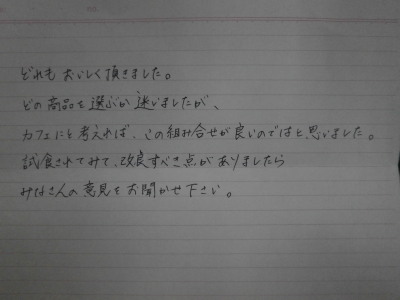 どれもおいしく頂きました。
どの商品を選ぶか迷いましたが、
カフェにと考えれば、この組み合せが良いのではと思いました。
試食されてみて、改良すべき点がありましたら
みなさんの意見をお聞かせ下さい。